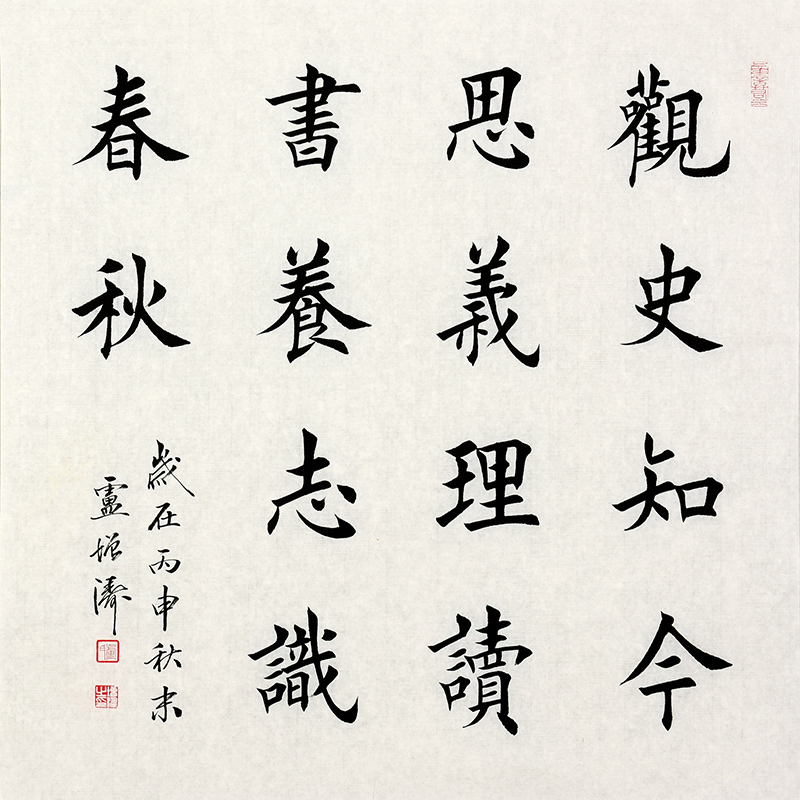 觀史知今
思義理讀
書養志識
春秋
歲在丙申秋末
盧增濟